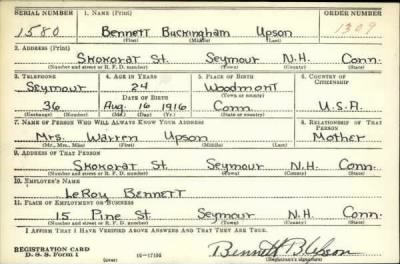 SERIAL NUMBER 1. NAME (Print) ORDER NUMBER
1580 Bennett Buckingham Upson 1309
(First) (Middle) (Last)
2. ADDRESS (Print)
Skokorat St. Seymour N.H. Conn.
(Number and street or R. F. D. number) (Town) (County) (State)
3. TELEPHONE 4. AGE IN YEARS 5. PLACE OF BIRTH 6. COUNTRY OF CITIZENSHIP
Seymour 24 Woodmont
DATE OF BIRTH (Town or county)
36 Aug. 16 1916 Conn U.S.A.
(Exchange) (Number) (Mo.) (Day) (Yr.) (State or country)
7. NAME OF PERSON WHO WILL ALWAYS KNOW YOUR ADDRESS 8. RELATIONSHIP OF THAT PERSON
Mrs. Warren Upson Mother
(Mr., Mrs., Miss) (First) (Middle) (Last)
9. ADDRESS OF THAT PERSON
Skokorat St. Seymour N.H. Conn.
(Number and street or R. F. D. number) (Town) (County) (State)
10. EMPLOYER'S NAME
LeRoy Bennett
11. PLACE OF EMPLOYMENT OR BUSINESS
15 Pine St. Seymour N.H. Conn.
(Number and street or R. F. D. number) (Town) (County) (State)
I AFFIRM THAT I HAVE VERIFIED ABOVE ANSWERS AND THAT THEY ARE TRUE.
REGISTRATION CARD
D. S. S. Form 1 (over) Bennett B. Upson
(Registrant's signature)